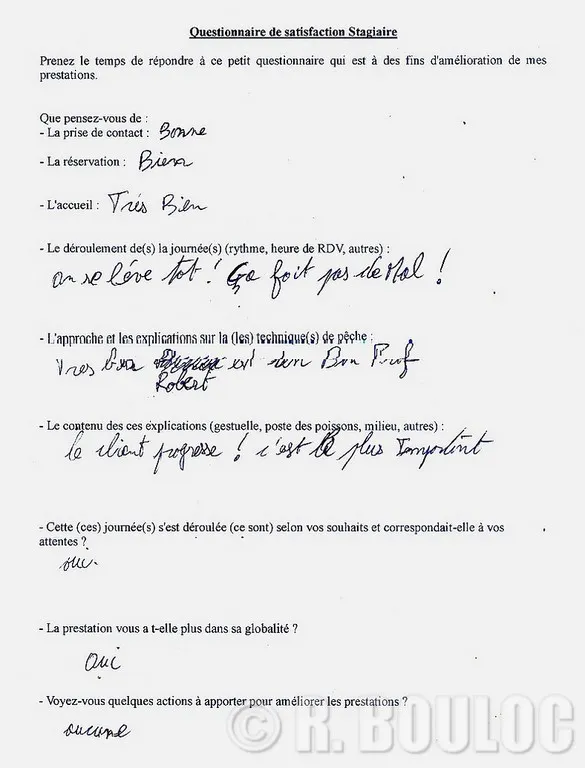 Questionnaire de satisfaction Stagiaire
Prenez le temps de répondre à ce petit questionnaire qui est à des fins d'amélioration de mes
prestations.
Que pensez-vous de :
- La prise de contact : Bonne
- La réservation : Bien
- L'accueil : Trés Bien
- Le déroulement de(s) la journée(s) (rythme, heure de RDV, autres) :
on se léve tot ! ça fait pas de Mal !
- L'approche et les explications sur la (les) technique(s) de pêche :
Tres bien est un Bon Prof
Robert
- Le contenu des ces explications (gestuelle, poste des poissons, milieu, autres) :
le client progresse ! c'est le plus Important
- Cette (ces) journée(s) s'est déroulée (ce sont) selon vos souhaits et correspondait-elle à vos
attentes ?
oui.
- La prestation vous a t-elle plus dans sa globalité ?
oui
- Voyez-vous quelques actions à apporter pour améliorer les prestations ?
aucune
© R. BOULOC